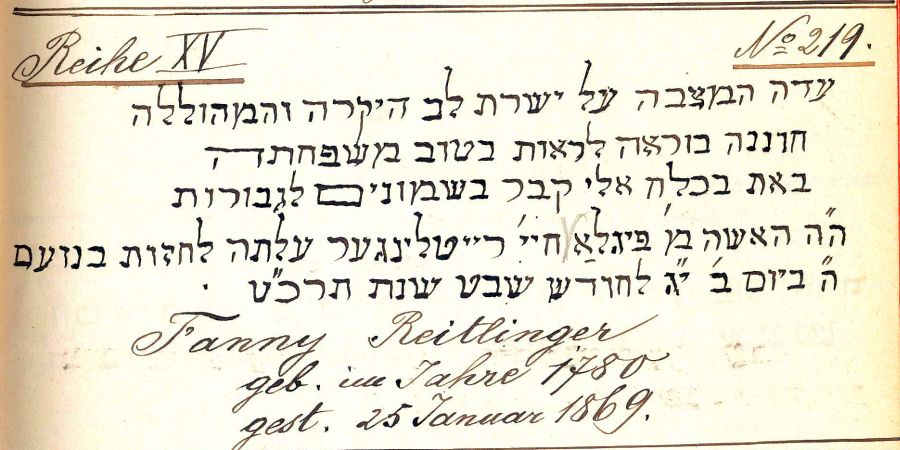 Reihe XV
No 219.
עדה המצבה על ישרת לב היקרה והמהוללה
חוננה בוראה לראות בטוב משפחתה
באת בכלח אלי קבר בשמונים לגבורות
ה"ה האשה מ' פיגלא חיי' רייטלינגער עלתה לחזות בנועם
ה' ביום ב' י"ג לחודש שבט שנת תרכ"ט .
Fanny Reitlinger
geb. im Jahre 1780
gest. 25 Januar 1869.